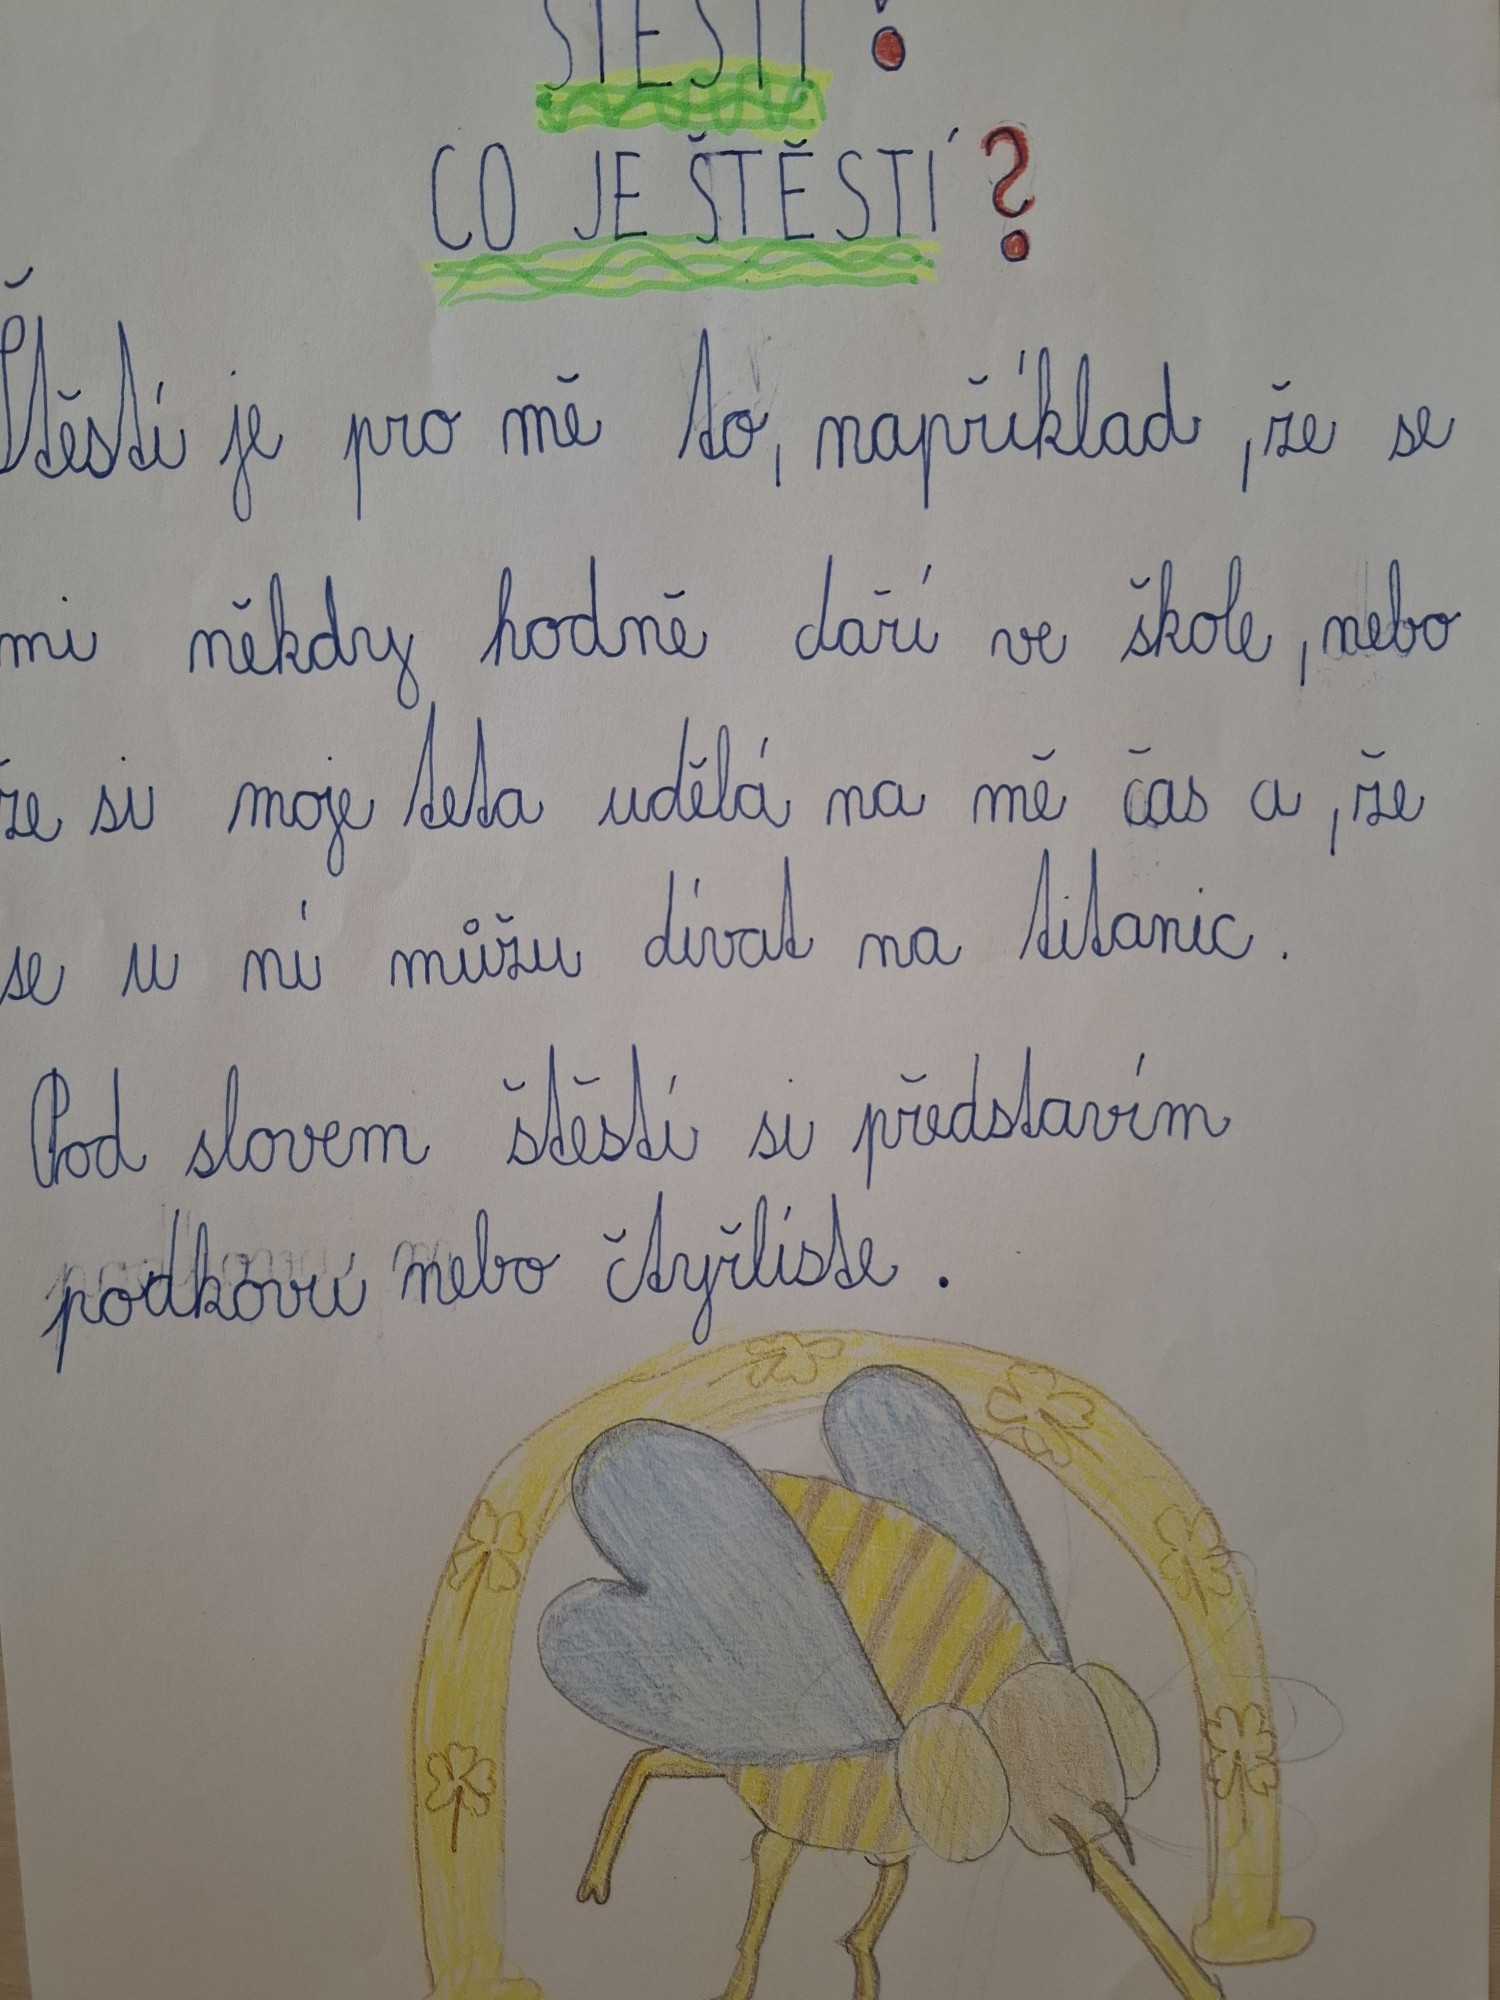 ŠTĚSTÍ !
CO JE ŠTĚSTÍ ?
Štěstí je pro mě to, například ,že se
mi někdy hodně daří ve škole ,nebo
že si moje teta udělá na mě čas a ,že
se u ní můžu dívat na titanic .
Pod slovem štěstí si představím
podkovu nebo čtyřlíste .